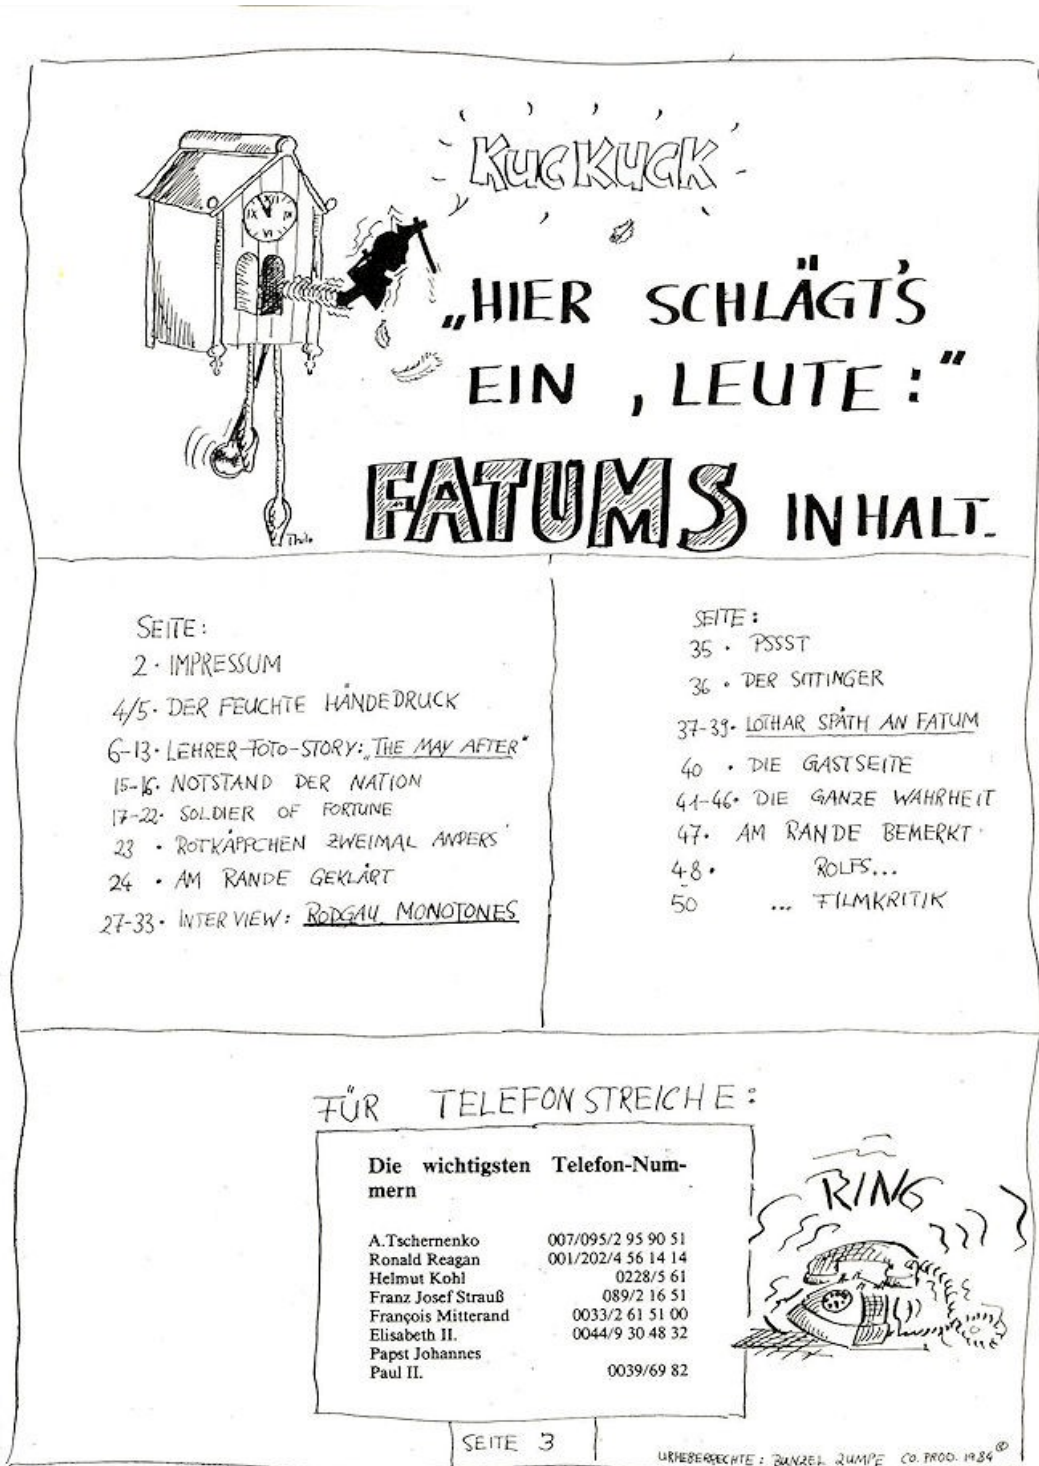 KUCKUCK
„HIER SCHLÄGT'S
EIN, LEUTE:“
FATUMS INHALT.
Thilo
SEITE:
2 · IMPRESSUM
4/5 · DER FEUCHTE HÄNDEDRUCK
6-13 · LEHRER-FOTO-STORY: „THE MAY AFTER“
15-16 · NOTSTAND DER NATION
17-22 · SOLDIER OF FORTUNE
23 · ROTKÄPPCHEN ZWEIMAL ANDERS
24 · AM RANDE GEKLÄRT
27-33 · INTERVIEW: RODGAU MONOTONES
SEITE:
35 · PSSST
36 · DER SITTINGER
37-39 · LOTHAR SPÄTH AN FATUM
40 · DIE GASTSEITE
41-46 · DIE GANZE WAHRHEIT
47 · AM RANDE BEMERKT
48 · ROLFS...
50 ... FILMKRITIK
FÜR TELEFONSTREICHE:
Die wichtigsten Telefon-Num-
mern
A.Tschernenko 007/095/2 95 90 51
Ronald Reagan 001/202/4 56 14 14
Helmut Kohl 0228/5 61
Franz Josef Strauß 089/2 16 51
François Mitterand 0033/2 61 51 00
Elisabeth II. 0044/9 30 48 32
Papst Johannes
Paul II. 0039/69 82
RING
SEITE 3
URHEBERRECHTE: BUNZEL ZUMPE CO. PROD. 1984 ©